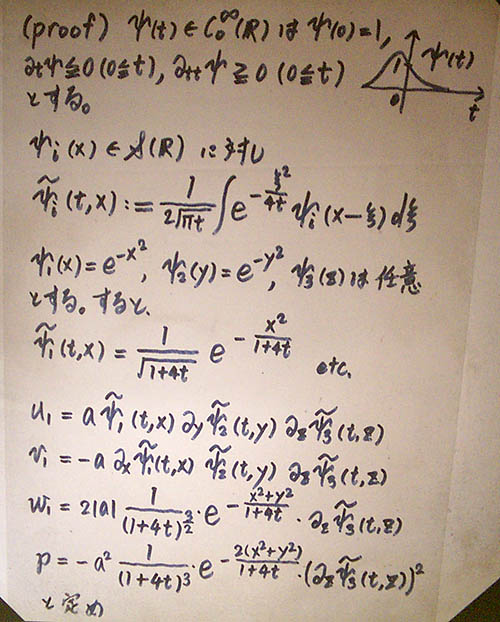 (proof) ψ(t) ∈ C₀^∞(ℝ) は ψ(0)=1,
∂tψ≦0 (0≦t), ∂ttψ ≧ 0 (0≦t)
とする。
1 ψ(t)
0 t
ψi(x) ∈ 𝒮(ℝ) に対し
ψ̃i(t,x) := 1/(2√πt) ∫ e^(-ξ²/4t) ψi(x-ξ) dξ
ψ1(x) = e^(-x²), ψ2(y) = e^(-y²), ψ3(z) は任意
とする。すると、
ψ̃1(t,x) = 1/√(1+4t) e^(-x²/(1+4t)) etc.
u1 = a ψ̃1(t,x) ∂yψ̃2(t,y) ∂zψ̃3(t,z)
v1 = -a ∂xψ̃1(t,x) ψ̃2(t,y) ∂zψ̃3(t,z)
w1 = 2|a| 1/(1+4t)^(3/2) · e^(-(x²+y²)/(1+4t)) · ∂zψ̃3(t,z)
p = -a² 1/(1+4t)³ · e^(-2(x²+y²)/(1+4t)) · (∂zψ̃3(t,z))²
と定め